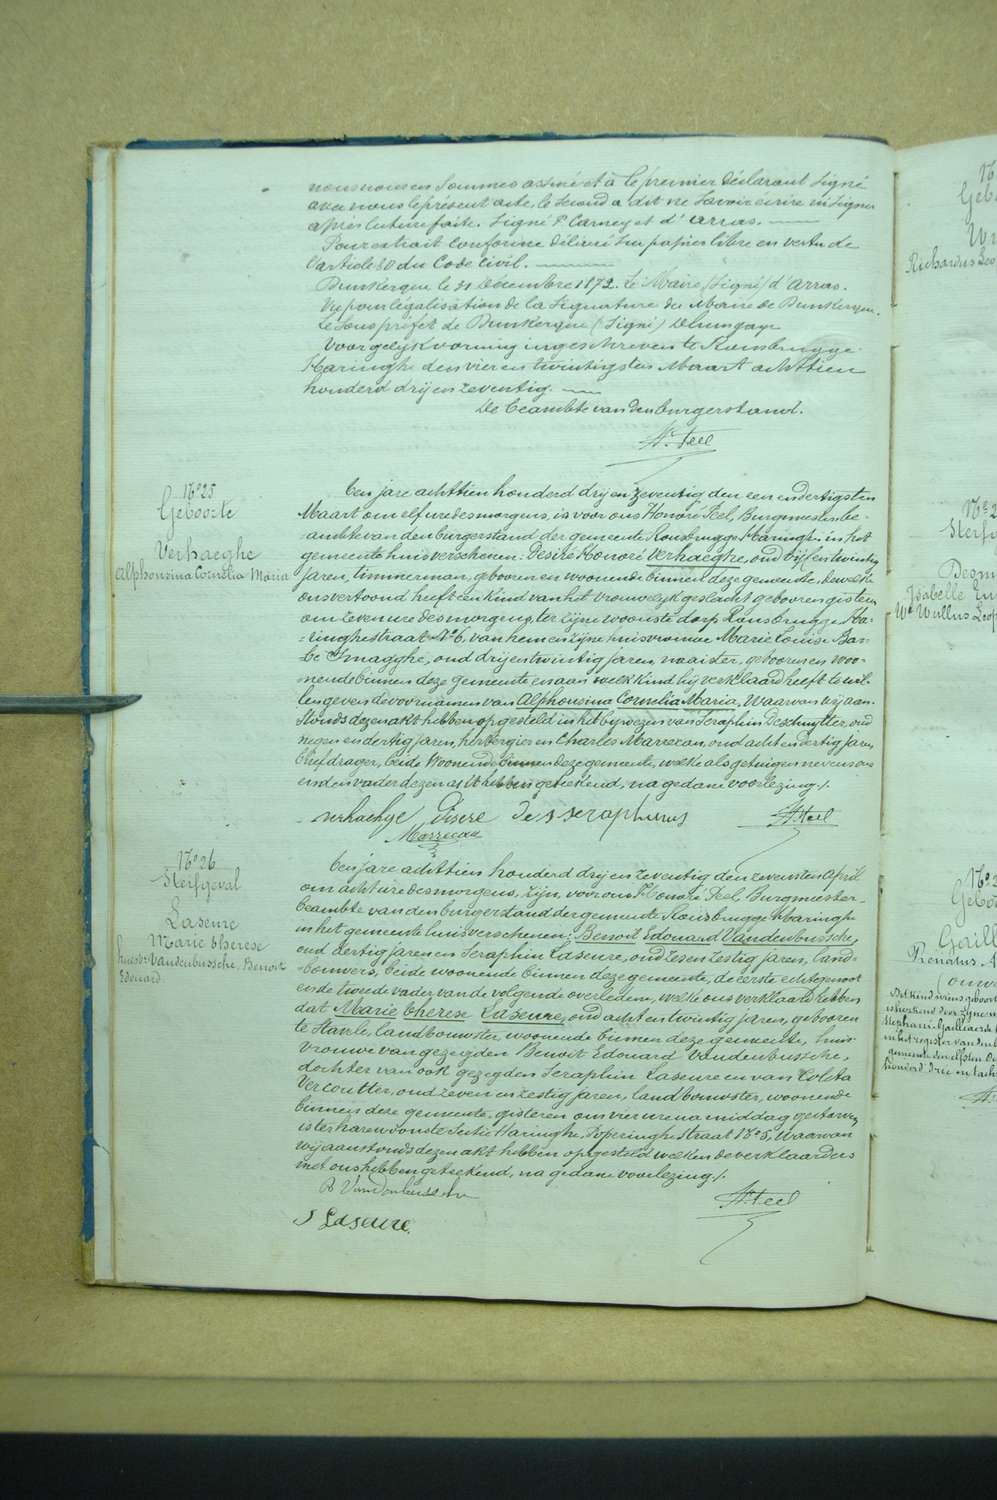 nous nous en sommes assuré et à le premier Déclarant signé
avec nous le présent acte, le second a dit ne savoir écrire ni signer
après lecture faite. Signé P. Carney et d'arras.
Pour extrait conforme délivré sur papier libre en vertu de
l'article 80 du Code Civil.
Dunkerque le 31 Décembre 1872. Le Maire (Signé) d'arras.
Vu pour légalisation de la Signature du Maire de Dunkerque.
Le Sous préfet de Dunkerque (Signé)
Voor gelijkvorming ingeschreven te Rousbrugge
Haringhe den vier en twintigsten Maart achttien
honderd drij en zeventig.
De beambte van den burgerstand.
H. Feel
No 25
Geboorte
Verhaeghe
Alphonsina Cornelia Maria
Ten jare achttien honderd drij en zeventig den een en dertigsten
Maart om elf ure des morgens, is voor ons Honoré Feel, Burgmeester be-
ambte van den burgerstand der gemeente Rousbrugge Haringhe in het
gemeente huis verschenen: Desiré Honoré Verhaeghe, oud vijf en twintig
jaren, timmerman, geboren en woonende binnen deze gemeente, dewelke
ons vertoond heeft een kind van het vrouwelijk geslacht geboren gisteren
om zeven ure des morgens, ter zijne woonste dorp Rousbrugge Ha-
ringhestraat No 6, van hem en zijne huisvrouwe Marie Louise Bar-
be Smagghe, oud drij en twintig jaren, naaister, geboren en woo-
nende binnen deze gemeente en aan welk kind hij verklaard heeft te wil-
len geven de voornamen van Alphonsina Cornelia Maria, Waarvan wij aan-
stonds dezen akt hebben opgesteld in het bijwezen van Seraphin Deschuytter, oud
negen en dertig jaren, herbergier en Charles Marrecau, oud acht en dertig jaren
briefdrager, beide woonende binnen deze gemeente, welke als getuigen nevens ons
en den vader dezen akt hebben geteekend, na gedane voorlezing./.
verhaeghe Disere de s seraphinus
Marrecau
H. Feel
No 26
Sterfgeval
Laseure
Marie Therese
huisv: Vandenbussche, Benoit
Edouard.
Ten jare achttien honderd drij en zeventig den zevensten April
om acht ure des morgens, zijn, voor ons Honoré Feel, Burgmeester
beambte van den burgerstand der gemeente Rousbrugge Haringhe
in het gemeente huis verschenen: Benoit Edouard Vandenbussche,
oud dertig jaren en Seraphin Laseure, oud zes en zestig jaren, land-
bouwers, beide woonende binnen deze gemeente, de eerste echtgenoot
en de tweede vader van de volgende overledene, welke ons verklaard hebben
dat Marie Therese Laseure, oud acht en twintig jaren, geboren
te Stavele, landbouwster, woonende binnen deze gemeente, huis-
vrouwe van gezegden Benoit Edouard Vandenbussche,
dochter van ook gezegden Seraphin Laseure en van Coleta
Vercoutter, oud zeven en zestig jaren, landbouwster, woonende
binnen deze gemeente, gisteren om vier ure na middag gestorven
is ter harewoonste sectie Haringhe, Poperinghestraat No 5, Waarvan
wij aanstonds dezen akt hebben opgesteld welken de verklaarders
met ons hebben geteekend, na gedane voorlezing./.
B Vandenbussche
H. Feel
S Laseure.
Richardus Leo
Sterfg
Isabelle
We Wullus Leop
Gebo
Gaill